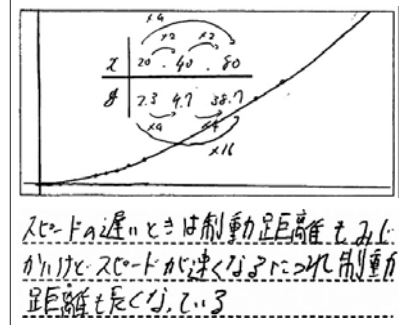 ×4
×2 ×2
x 20 . 40 . 80
y 2.3 9.7 38.7
×4 ×4
×16
スピードの遅いときは制動距離もみじ
かいけど スピードが速くなるにつれ制動
距離も長くなっている